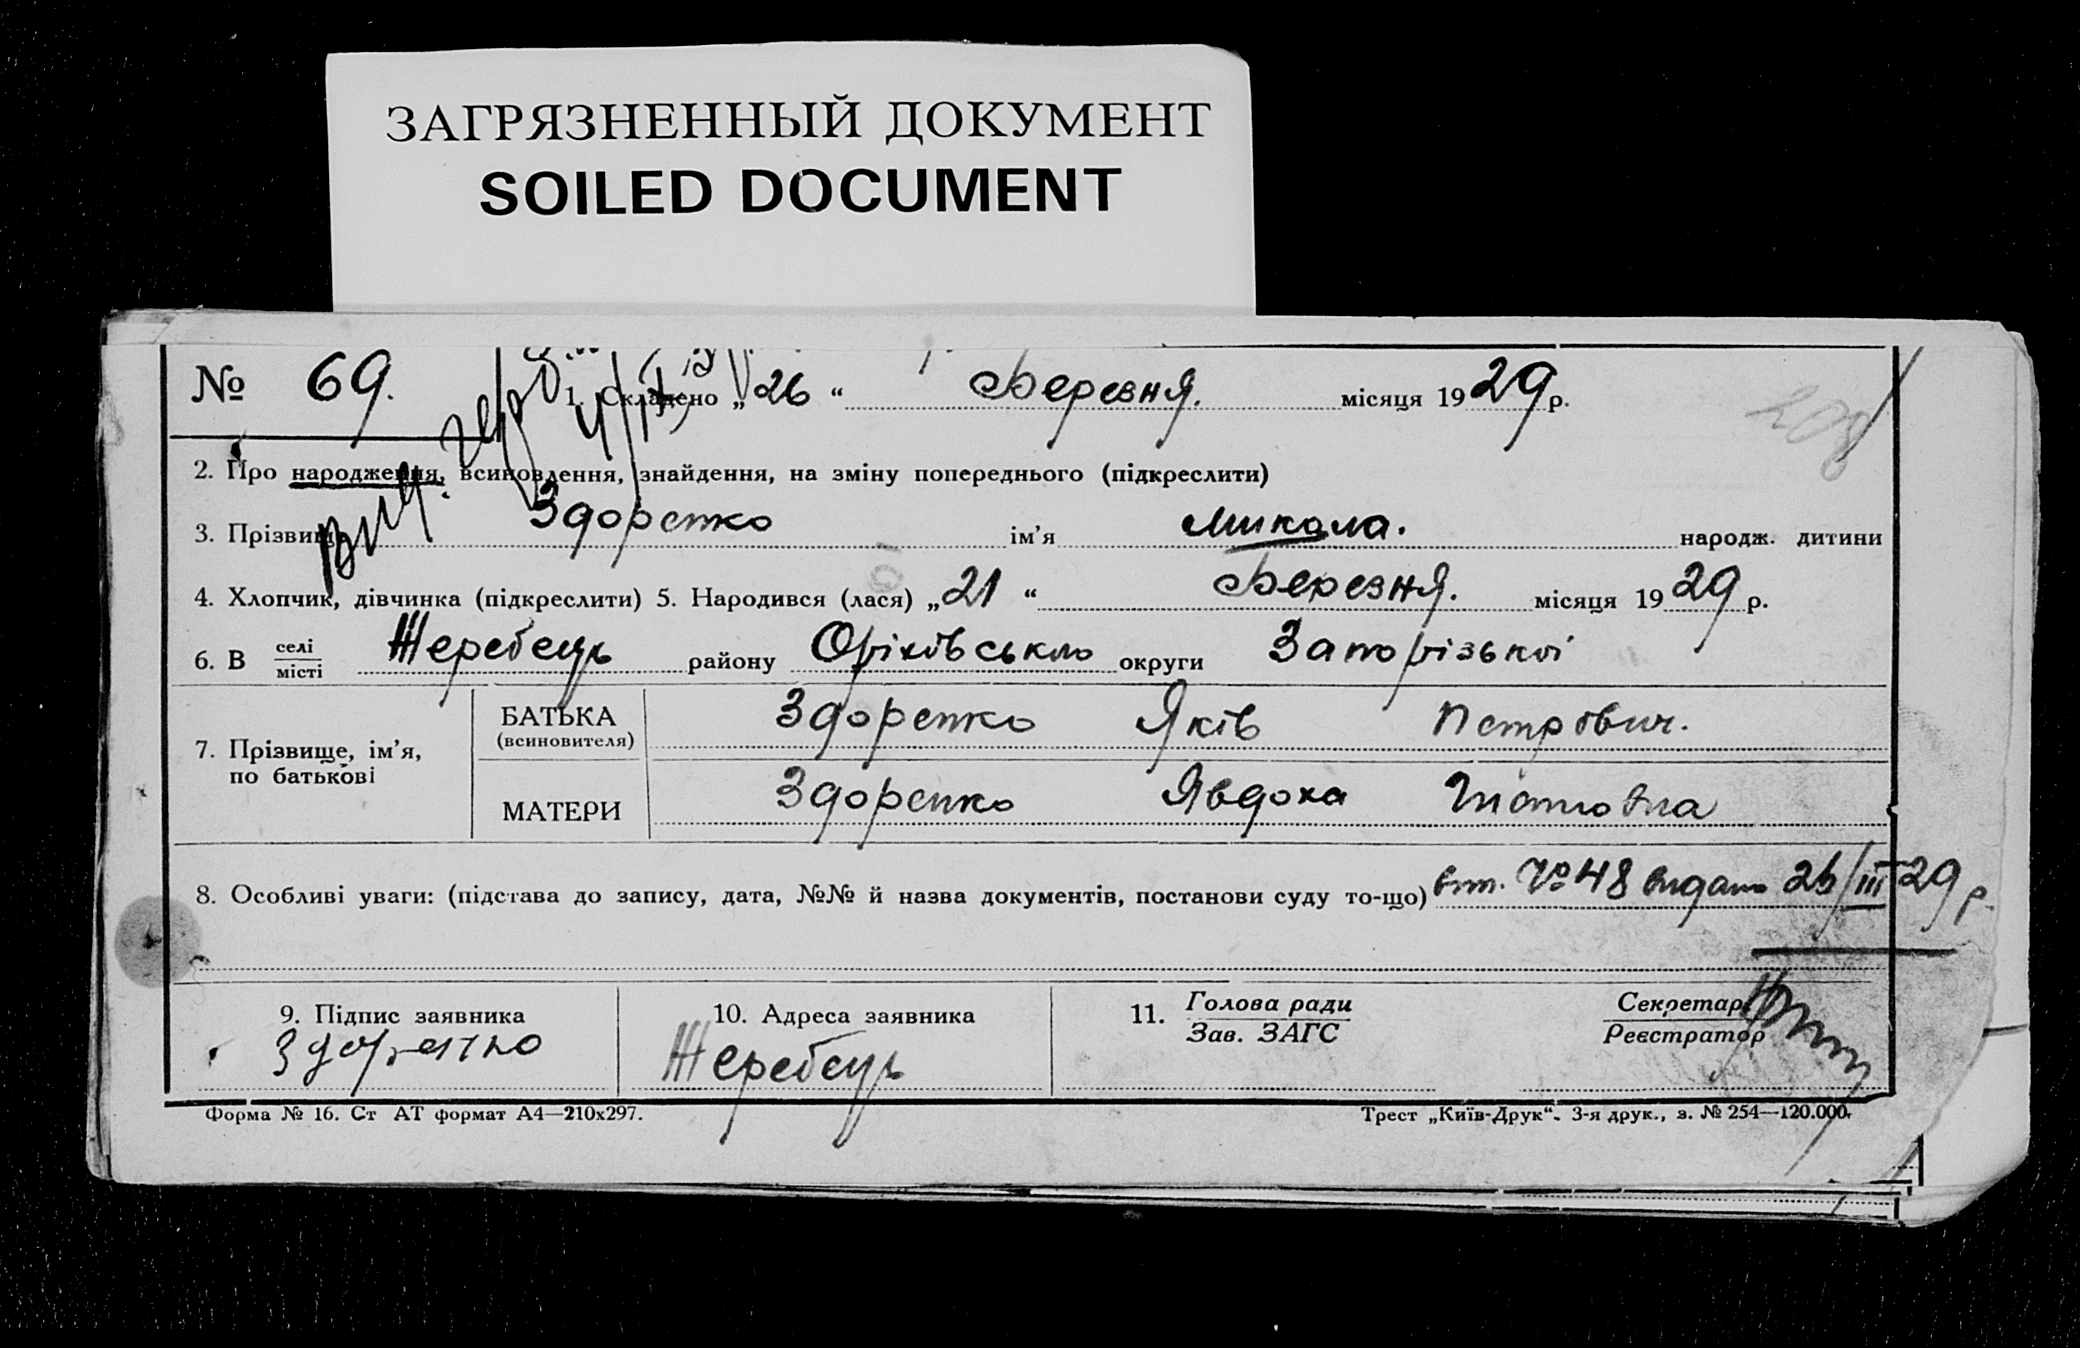 ЗАГРЯЗНЕННЫЙ ДОКУМЕНТ
SOILED DOCUMENT
№ 69. 1. Складено „26“ Березня. місяця 1929 р.
208
2. Про народження, всиновлення, знайдення, на зміну попереднього (підкреслити)
3. Прізвище Здоренко ім'я Микола. народж. дитини
4. Хлопчик, дівчинка (підкреслити) 5. Народився (лася) „21“ Березня. місяця 1929 р.
6. В селі/місті Жеребець району Оріхівсько округи Запорізької
7. Прізвище, ім'я, по батькові
БАТЬКА (всиновителя) Здоренко Яків Петрович.
МАТЕРИ Здоренко Явдоха
8. Особливі уваги: (підстава до запису, дата, №№ й назва документів, постанови суду то-що) вит. № 48 видано 26/III 29 р.
9. Підпис заявника 10. Адреса заявника 11. Голова ради/Зав. ЗАГС Секретар/Реєстратор
Здоренко Жеребець
Форма № 16. Ст АТ формат А4—210х297. Трест „Київ-Друк“. 3-я друк., з. № 254—120.000.